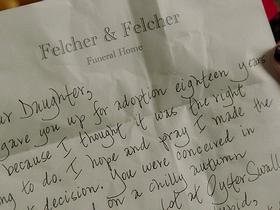 Felcher & Felcher
Funeral Home
ur Daughter,
gave you up for adoption eighteen years
because I thought it was the right
ng to do. I hope and pray I made the
t decision. You were conceived in
on a chilly autumn
lot at Oyster